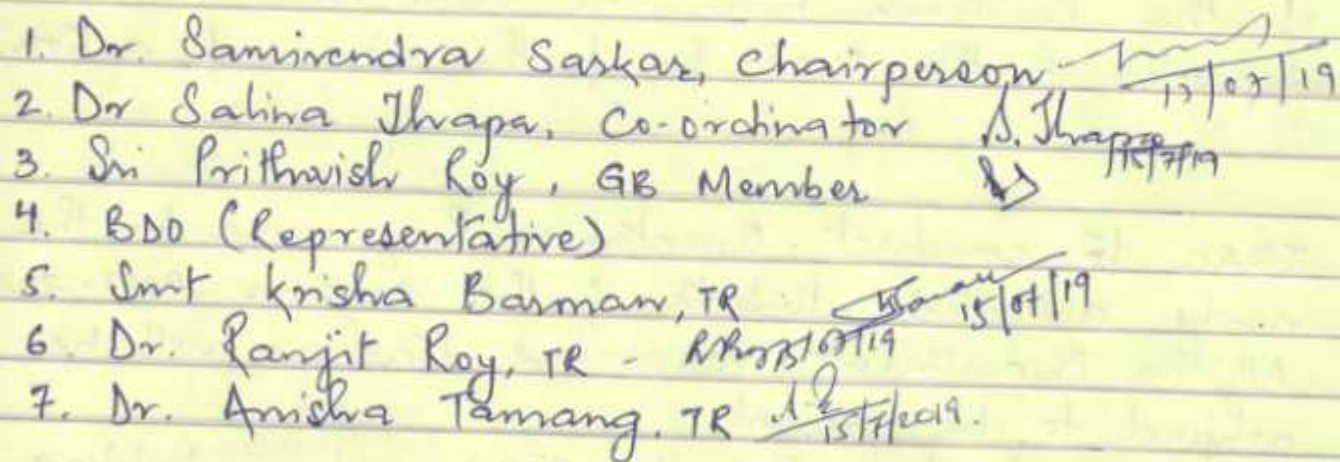 1. Dr. Samirendra Sarkar, Chairperson 17/07/19
2. Dr Salina Thapa, Co-ordinator S. Thapa 15/7/19
3. Sri Prithwish Roy, GB Member
4. BDO (Representative)
5. Smt Krisha Barman, TR Barman 15/07/19
6. Dr. Ranjit Roy, TR - RRoy 15/07/19
7. Dr. Anisha Tamang. TR 15/7/2019.